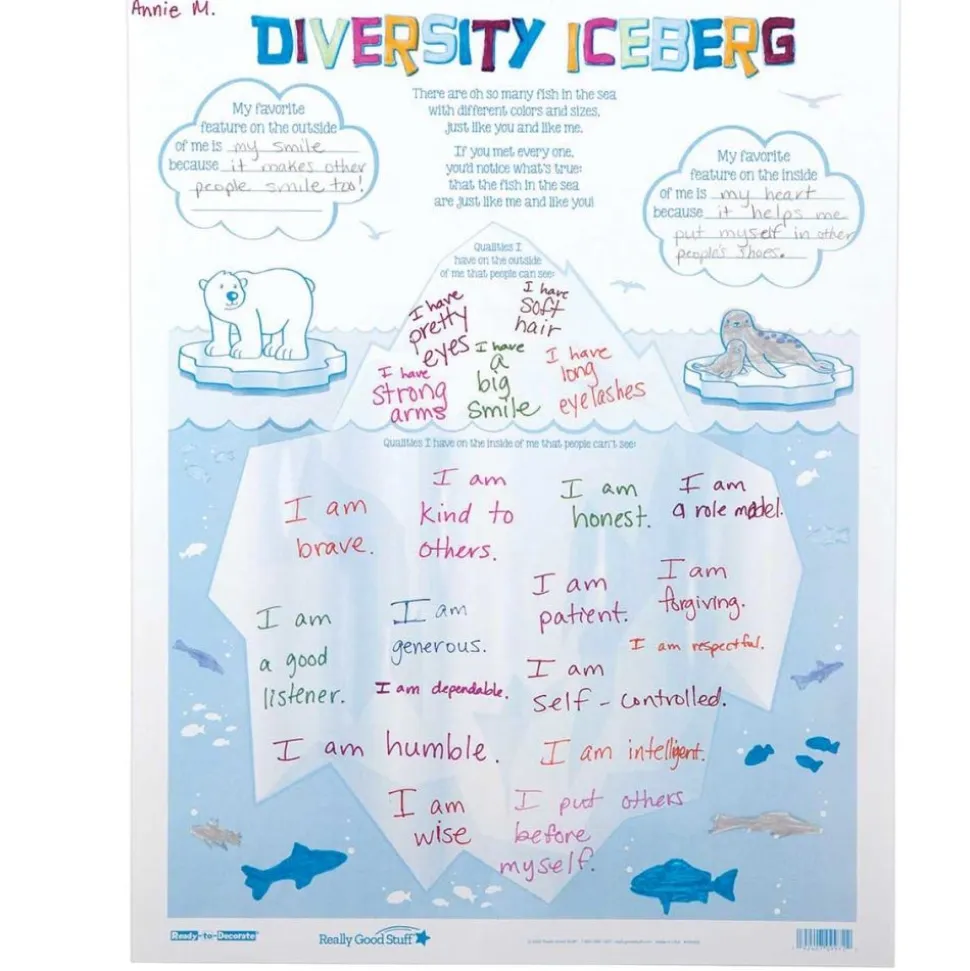 Annie M.
DIVERSITY ICEBERG
There are oh so many fish in the sea
with different colors and sizes,
just like you and like me.
If you met every one,
you'd notice what's true:
that the fish in the sea
are just like me and like you!
My favorite
feature on the outside
of me is my smile
because it makes other
people smile too!
My favorite
feature on the inside
of me is my heart
because it helps me
put myself in other
people's shoes.
Qualities I
have on the outside
of me that people can see:
I have
pretty
eyes
I have
soft
hair
I have
strong
arms
I have
a
big
smile
I have
long
eyelashes
Qualities I have on the inside of me that people can't see:
I am
brave.
I am
kind to
others.
I am
honest.
I am
a role model.
I am
a good
listener.
I am
generous.
I am
patient.
I am
forgiving.
I am respectful.
I am dependable.
I am
self-controlled.
I am humble.
I am intelligent.
I am
wise
I put others
before
myself.
Ready-to-Decorate
Really Good Stuff